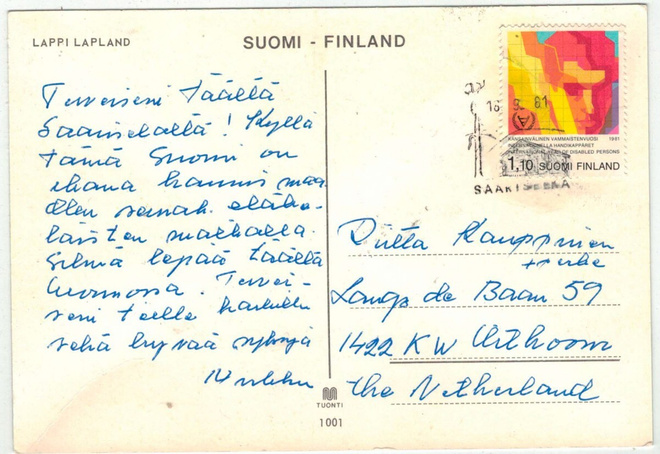 LAPPI LAPLAND
SUOMI - FINLAND
Terveiseni täältä
Saariselältä! Kyllä
tämä Suomi on
ihana kaunis maa
Olen seinäh. eläke-
läisten matkalla.
Silmä lepää täällä
luonnossa. Tervei-
seni teille kaikille
sekä hyvää syksyä
18 9. 81
KANSAINVÄLINEN VAMMAISTENVUOSI 1981
INTERNATIONELLA HANDIKAPPÅRET
INTERNATIONAL YEAR OF DISABLED PERSONS
1.10 SUOMI FINLAND
SAARISELKÄ
Riitta Kauppinen
+ perhe
Langs de Baan 59
1422 KW Uithoorn
the Netherland
TUONTI
1001